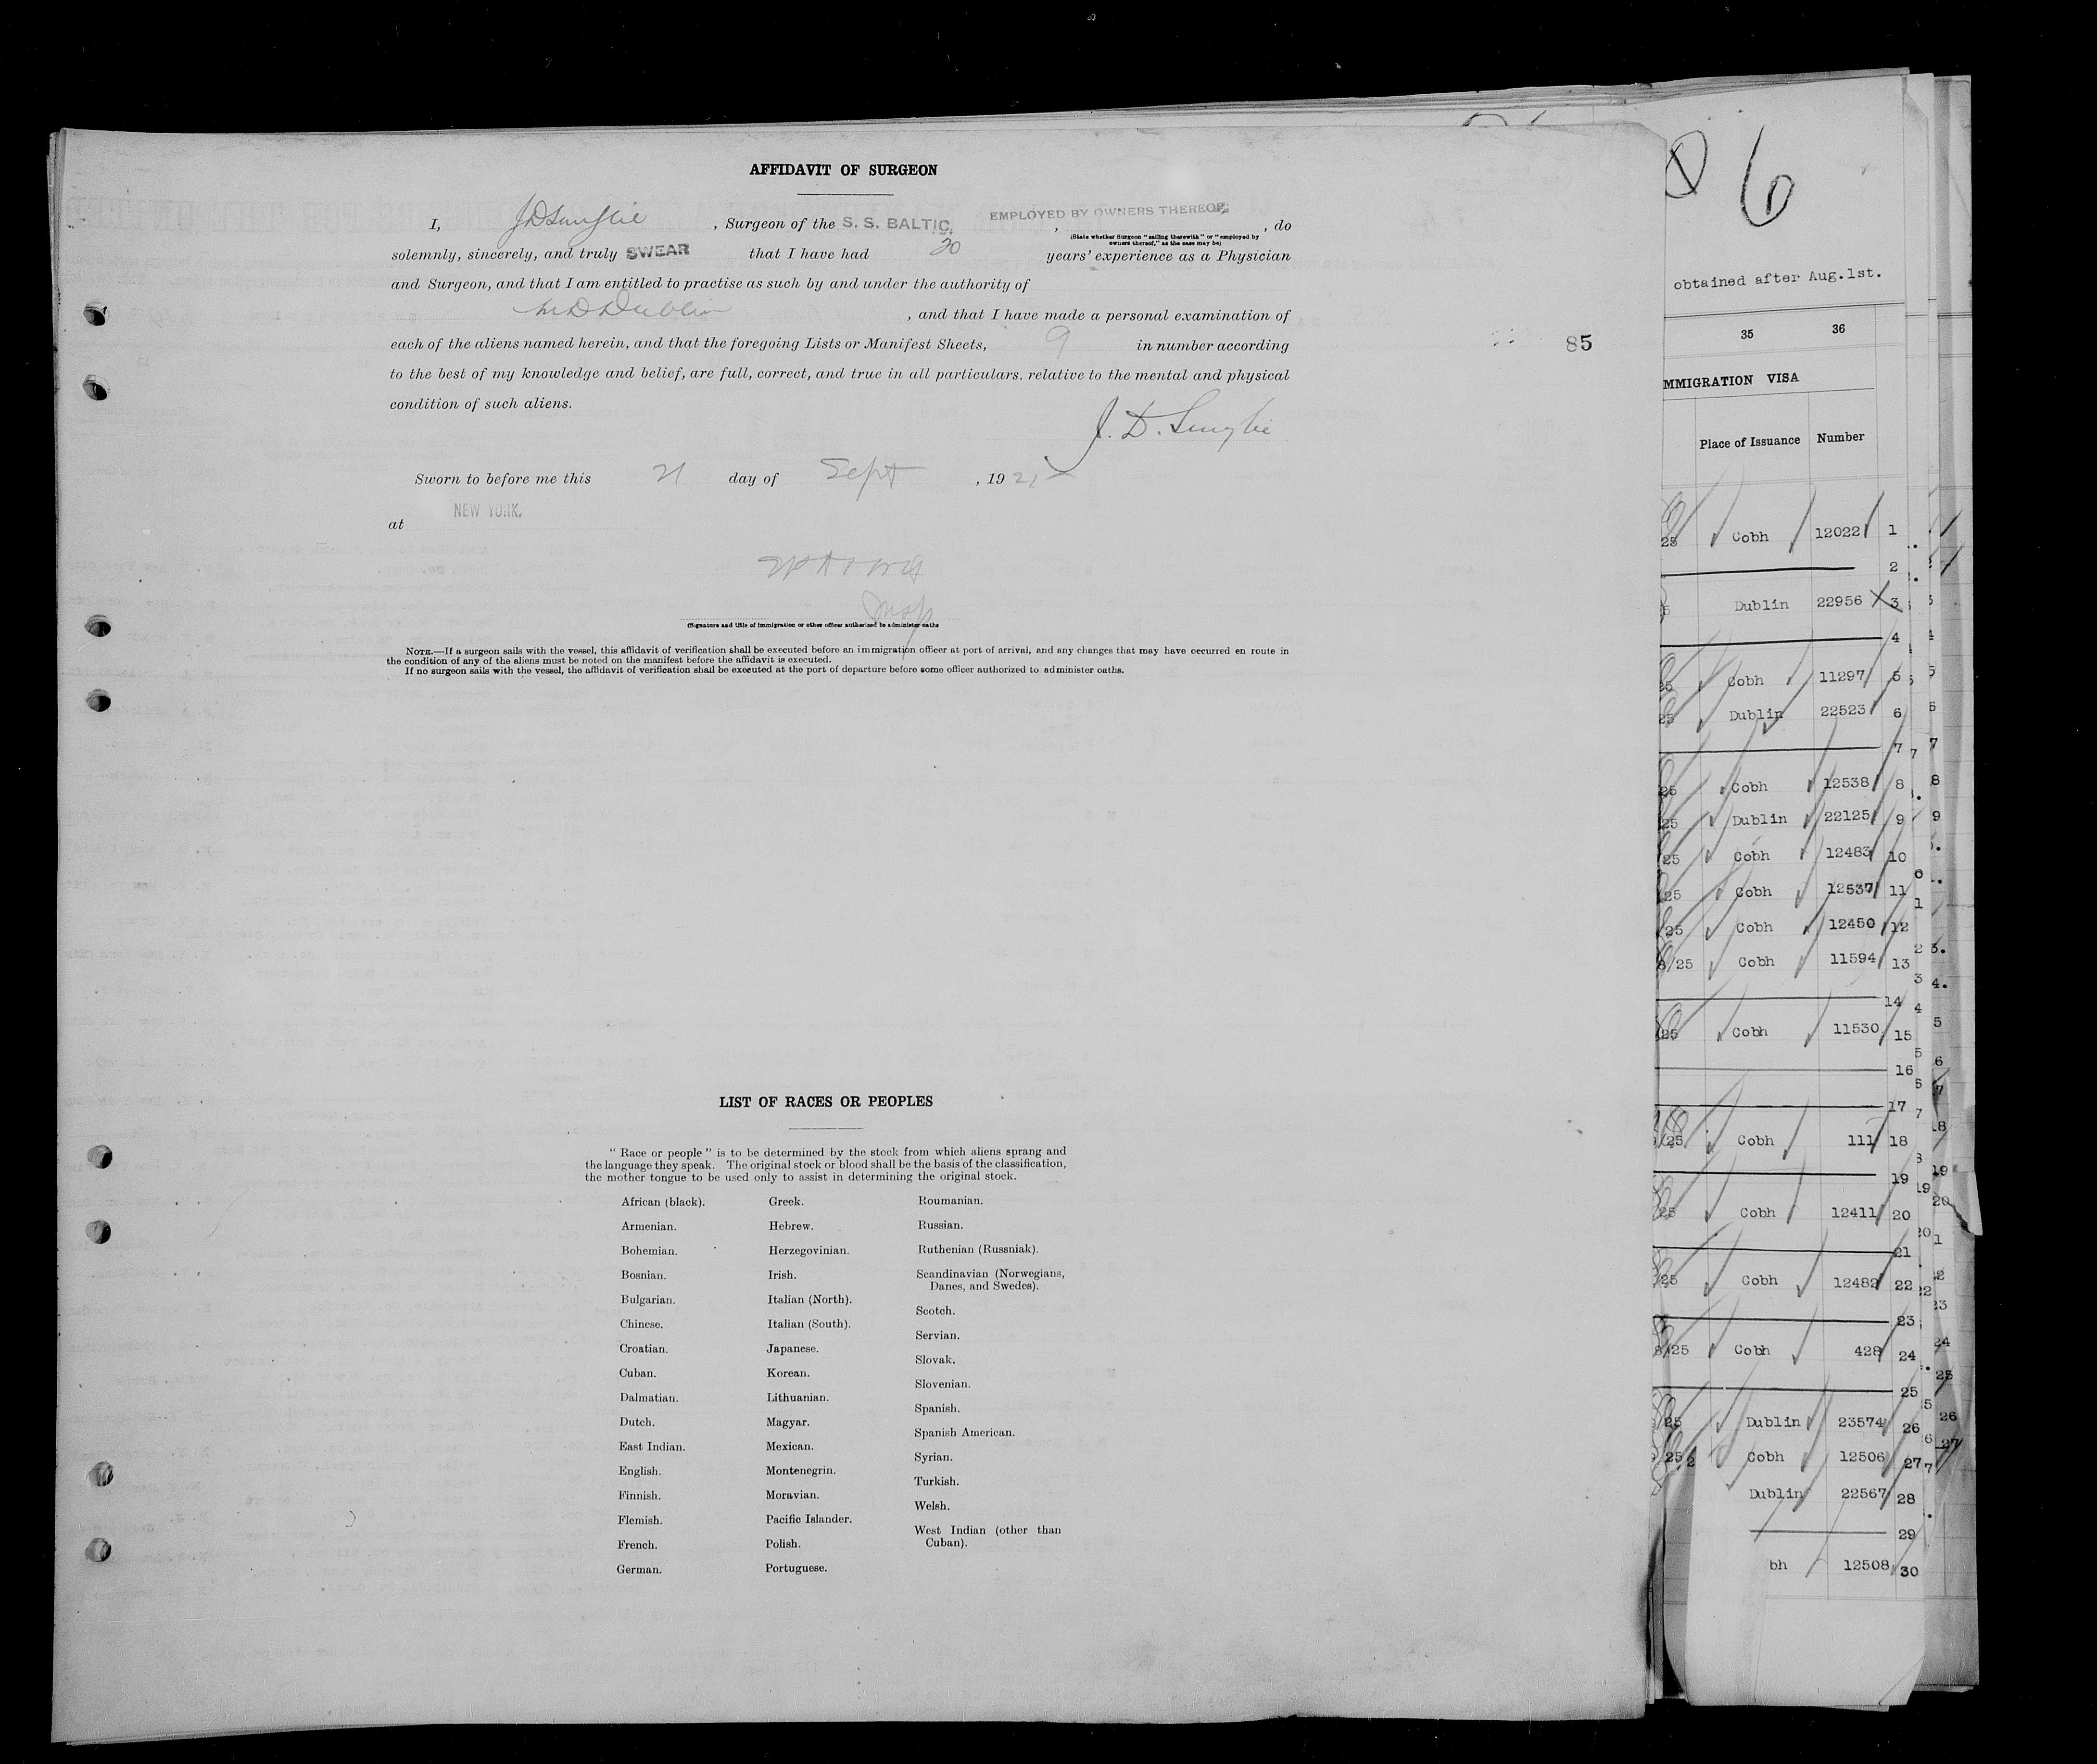 AFFIDAVIT OF SURGEON
I, , Surgeon of the S. S. BALTIC, EMPLOYED BY OWNERS THEREOF, , do
(State whether Surgeon "sailing therewith" or "employed by
owners thereof," as the case may be)
solemnly, sincerely, and truly SWEAR that I have had 30 years' experience as a Physician
and Surgeon, and that I am entitled to practise as such by and under the authority of
M D Dublin , and that I have made a personal examination of
each of the aliens named herein, and that the foregoing Lists or Manifest Sheets, 9 in number according
to the best of my knowledge and belief, are full, correct, and true in all particulars. relative to the mental and physical
condition of such aliens.
J. D.
Sworn to before me this 21 day of Sept , 19
at NEW YORK.
Insp
(Signature and title of immigration or other officer authorized to administer oaths
NOTE.—If a surgeon sails with the vessel, this affidavit of verification shall be executed before an immigration officer at port of arrival, and any changes that may have occurred en route in
the condition of any of the aliens must be noted on the manifest before the affidavit is executed.
If no surgeon sails with the vessel, the affidavit of verification shall be executed at the port of departure before some officer authorized to administer oaths.
85
LIST OF RACES OR PEOPLES
"Race or people" is to be determined by the stock from which aliens sprang and
the language they speak. The original stock or blood shall be the basis of the classification,
the mother tongue to be used only to assist in determining the original stock.
African (black).
Armenian.
Bohemian.
Bosnian.
Bulgarian.
Chinese.
Croatian.
Cuban.
Dalmatian.
Dutch.
East Indian.
English.
Finnish.
Flemish.
French.
German.
Greek.
Hebrew.
Herzegovinian.
Irish.
Italian (North).
Italian (South).
Japanese.
Korean.
Lithuanian.
Magyar.
Mexican.
Montenegrin.
Moravian.
Pacific Islander.
Polish.
Portuguese.
Roumanian.
Russian.
Ruthenian (Russniak).
Scandinavian (Norwegians,
Danes, and Swedes).
Scotch.
Servian.
Slovak.
Slovenian.
Spanish.
Spanish American.
Syrian.
Turkish.
Welsh.
West Indian (other than
Cuban).
6
obtained after Aug.1st.
35 36
MMIGRATION VISA
Place of Issuance Number
25 Cobh 12022 1
2
5 Dublin 22956 3
4
25 Cobh 11297 5
25 Dublin 22523 6
7
25 Cobh 12538 8
25 Dublin 22125 9
25 Cobh 12483 10
25 Cobh 12537 11
25 Cobh 12450 12
8/25 Cobh 11594 13
14
25 Cobh 11530 15
16
17
/25 Cobh 111 18
19
25 Cobh 12411 20
21
/25 Cobh 12482 22
23
8/25 Cobh 428 24
25
25 Dublin 23574 26
25 Cobh 12506 27
Dublin 22567 28
29
bh 12508 30